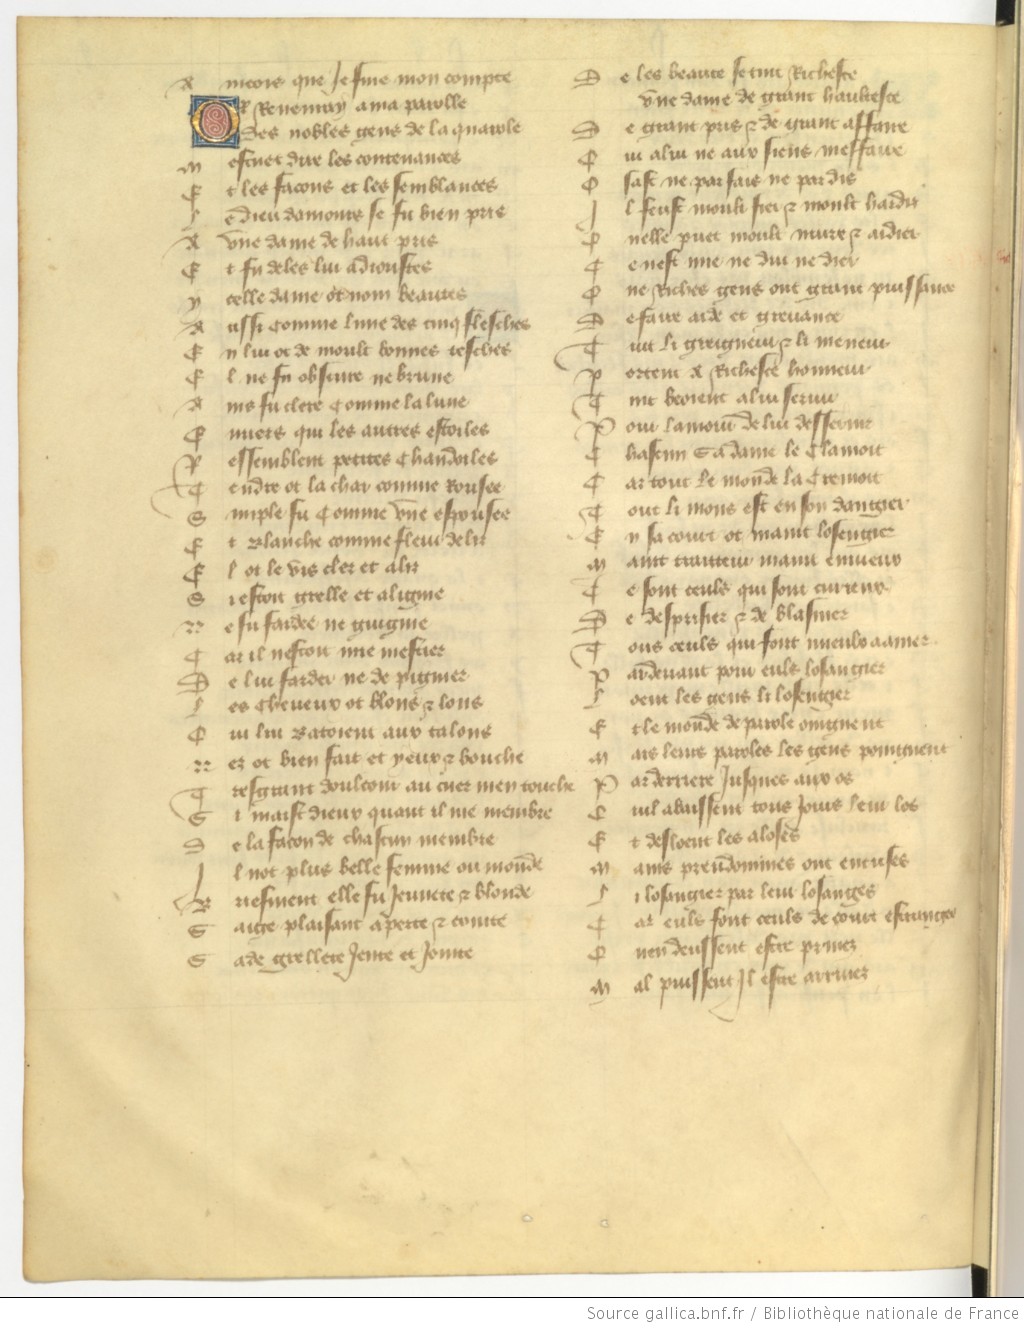 A incois que Je fine mon compte
OR Revenray a ma parolle
Des nobles gens de la quarole
M estuet dire les contenances
E t les facons et les semblances
L e dieu damours se fu bien pris
A vne dame de haut pris
E t fu deles lui adioustes
y celle dame ot nom beautes
A ussi comme lune des cinq flesches
E n lui ot de moult bonnes tesches
E l ne fu obscure ne brune
A ins fu clere Comme la lune
E nuers qui les autres estoiles
R essemblent petites Chandoiles
T endre ot la char comme Rousee
S imple fu Comme vne espousee
E t Blanche comme fleur de lis
E l ot le vis cler et alis
S i estoit grelle et alignie
N e fu fardee ne guignie
C ar il nestoit mie mestier
D e lui farder ne de pignier
L es Cheueux ot blons & lons
Q ui lui Batoient aux talons
N ez ot bien fait et yeux & bouche
T resgrant doulcour au cuer men touche
S i maist dieux quant il me membre
D e la facon de chascun membre
I l not plus belle femme ou monde
B riefment elle fu Jeunete & blonde
S aige plaisant aperte & cointe
S ade grellete Jente et Jointe
D e les beaute se tint Richesce
Vne dame de grant haultesce
D e grant pris & de grant affaire
Q ui a lui ne aux siens meffaire
O sast ne par fais ne par dis
I l feust moult fier & moult hardis
Q uelle puet moult nuire & aidier
C e nest mie ne dui ne dier
Q ue Riches gens ont grant puissance
D e faire aide et greuance
T uit li greigneur & li meneur
P ortent A Richesce honneur
T uit beoient a lui seruir
P our lamour de lui desseruir
C hascun Sa dame le Clamoit
C ar tout le monde la Cremoit
T out li mons est en son dangier
E n sa court ot maint losengier
M aint traitteur maint enuieux
C e sont ceuls qui sont curieux
D e desprisier & de blasmer
T ous ceuls qui font mieulx a amer
P ar deuant pour euls losangier
L oent les gens li losengier
E t le monde de parole oingnent
M ais leurs paroles les gens poingnent
P ar derriere Jusques aux os
Q uil abaissent tous Jours leur los
E t desloent les aloses
M ains preudommes ont encuses
L i losangier par leur losanges
C ar euls font ceuls de court estranges
Q ui en deussent estre priuez
M al puissent Jl estre arriuez
Source gallica.bnf.fr / Bibliothèque nationale de France